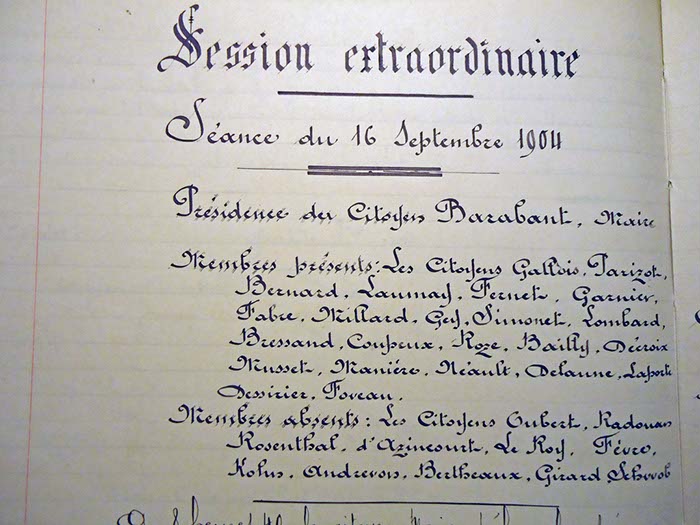 Session extraordinaire
Séance du 16 Septembre 1904
Présidence du Citoyen Barabant, Maire
Membres présents: Les Citoyens Gallois, Parizot,
Bernard, Launay, Fernet, Garnier,
Fabre, Millard, Gey, Simonet, Lombard,
Bressand, Coupeux, Roze, Bailly, Décroix
Musset, Manière, Néault, Delaune, Laporte
Dessirier, Foveau.
Membres absents: Les Citoyens Oubert, Radouan
Rosenthal, d'Azincourt, Le Roy, Fèvre,
Kohn, Andreven, Bertheaux, Girard Schwob